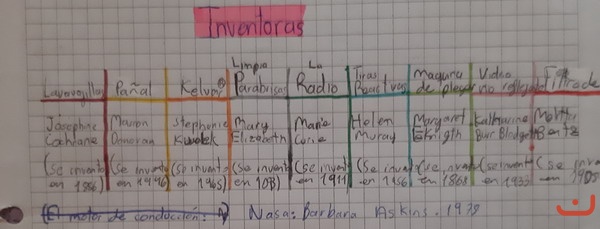 Inventoras
Lavavajillas Pañal Kelvar® Limpia Parabrisas La Radio Tiras Reactivas maquina de plegar Vidrio no reflejado Filtro de
Josephine Cochrane Marion Donovan Stephanie Kwolek Mary Elizabeth Marie Curie Helen Muray Margaret Eknigth Katharine Burr Blodgett Bentz
(Se invento en 1886) (Se invento en 1946) (Se invento en 1965) (Se invento en (Se invento en 1911) (Se invento en 1956) (se invento en 1868) (se invento en 1935) (Se invento en
(El motor de conducción: Nasa: Barbara Askins. 1978